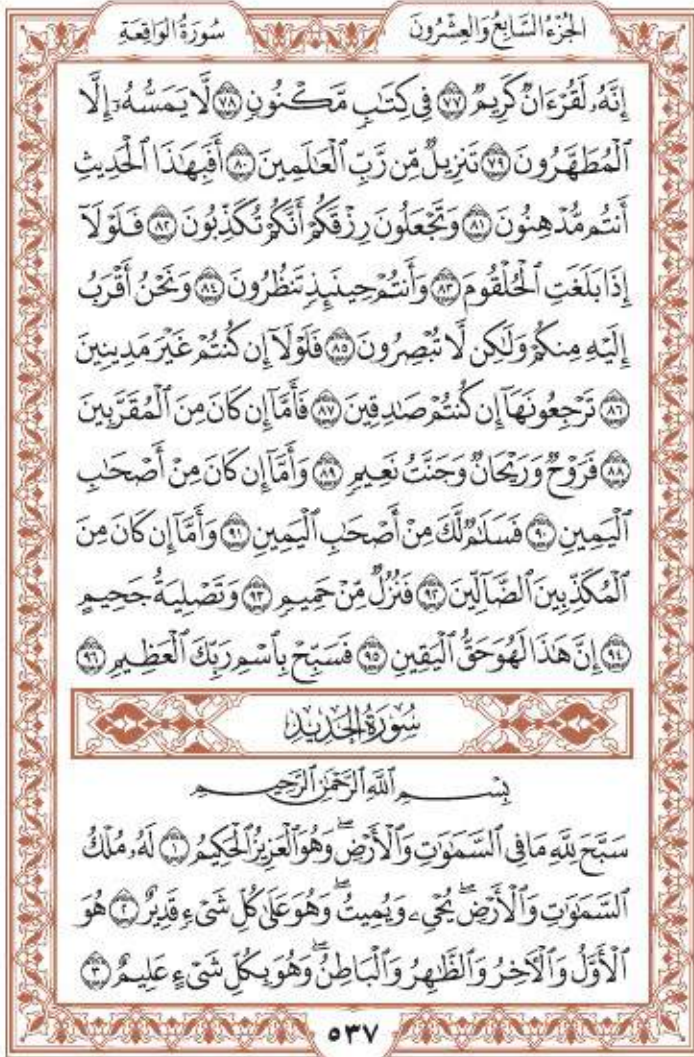 الجُزْءُ السَّابِعُ وَالعِشْرُونَ
سُورَةُ الوَاقِعَةِ
إِنَّهُۥ لَقُرْءَانٌ كَرِيمٌ ۝٧٧ فِي كِتَٰبٍ مَّكْنُونٍ ۝٧٨ لَّا يَمَسُّهُۥٓ إِلَّا
ٱلْمُطَهَّرُونَ ۝٧٩ تَنزِيلٌ مِّن رَّبِّ ٱلْعَٰلَمِينَ ۝٨٠ أَفَبِهَٰذَا ٱلْحَدِيثِ
أَنتُم مُّدْهِنُونَ ۝٨١ وَتَجْعَلُونَ رِزْقَكُمْ أَنَّكُمْ تُكَذِّبُونَ ۝٨٢ فَلَوْلَآ
إِذَا بَلَغَتِ ٱلْحُلْقُومَ ۝٨٣ وَأَنتُمْ حِينَئِذٍ تَنظُرُونَ ۝٨٤ وَنَحْنُ أَقْرَبُ
إِلَيْهِ مِنكُمْ وَلَٰكِن لَّا تُبْصِرُونَ ۝٨٥ فَلَوْلَآ إِن كُنتُمْ غَيْرَ مَدِينِينَ
۝٨٦ تَرْجِعُونَهَآ إِن كُنتُمْ صَٰدِقِينَ ۝٨٧ فَأَمَّآ إِن كَانَ مِنَ ٱلْمُقَرَّبِينَ
۝٨٨ فَرَوْحٌ وَرَيْحَانٌ وَجَنَّتُ نَعِيمٍ ۝٨٩ وَأَمَّآ إِن كَانَ مِنْ أَصْحَٰبِ
ٱلْيَمِينِ ۝٩٠ فَسَلَٰمٌ لَّكَ مِنْ أَصْحَٰبِ ٱلْيَمِينِ ۝٩١ وَأَمَّآ إِن كَانَ مِنَ
ٱلْمُكَذِّبِينَ ٱلضَّآلِّينَ ۝٩٢ فَنُزُلٌ مِّنْ حَمِيمٍ ۝٩٣ وَتَصْلِيَةُ جَحِيمٍ
۝٩٤ إِنَّ هَٰذَا لَهُوَ حَقُّ ٱلْيَقِينِ ۝٩٥ فَسَبِّحْ بِٱسْمِ رَبِّكَ ٱلْعَظِيمِ ۝٩٦
سُورَةُ الحَدِيدِ
بِسْمِ ٱللَّهِ ٱلرَّحْمَٰنِ ٱلرَّحِيمِ
سَبَّحَ لِلَّهِ مَا فِي ٱلسَّمَٰوَٰتِ وَٱلْأَرْضِۖ وَهُوَ ٱلْعَزِيزُ ٱلْحَكِيمُ ۝١ لَهُۥ مُلْكُ
ٱلسَّمَٰوَٰتِ وَٱلْأَرْضِۖ يُحْيِۦ وَيُمِيتُۖ وَهُوَ عَلَىٰ كُلِّ شَيْءٍ قَدِيرٌ ۝٢ هُوَ
ٱلْأَوَّلُ وَٱلْءَاخِرُ وَٱلظَّٰهِرُ وَٱلْبَاطِنُۖ وَهُوَ بِكُلِّ شَيْءٍ عَلِيمٌ ۝٣
٥٣٧